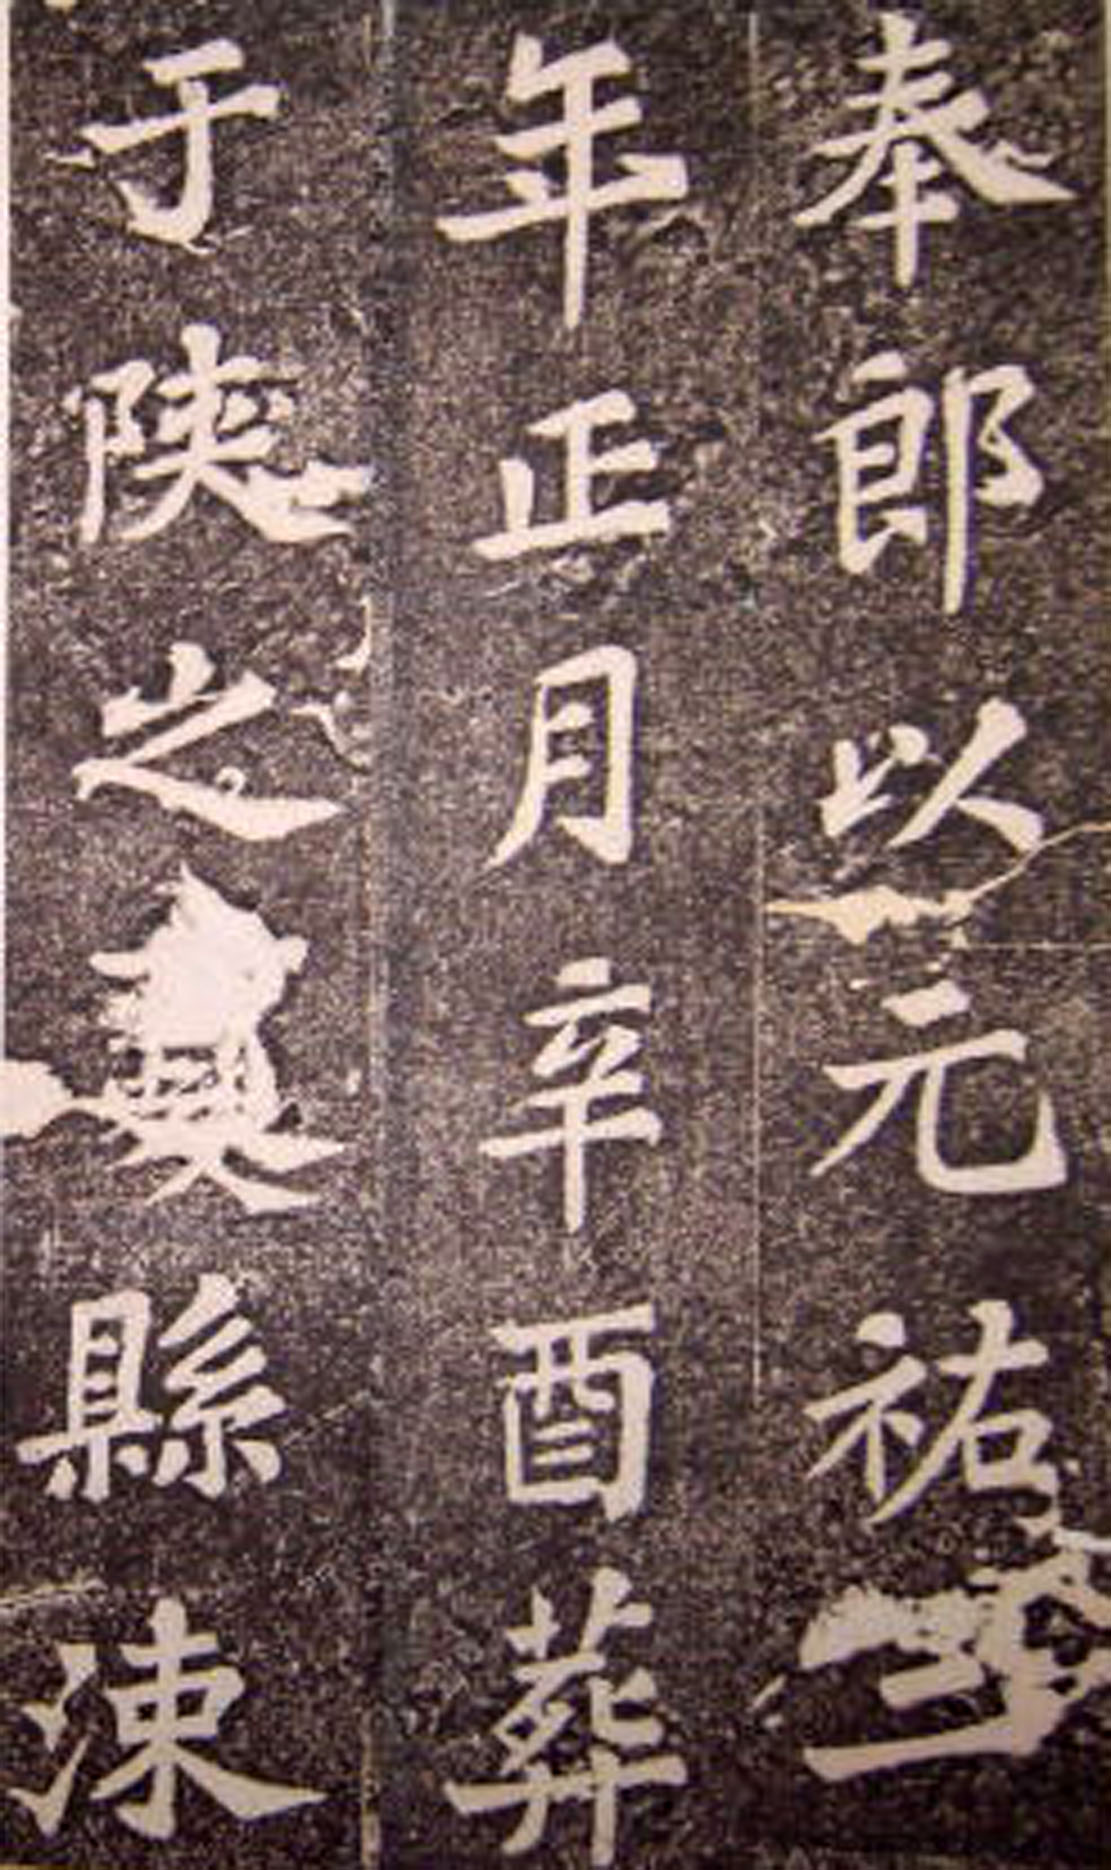 奉郎以元祐三
年正月辛酉葬
于陝之夏縣涑